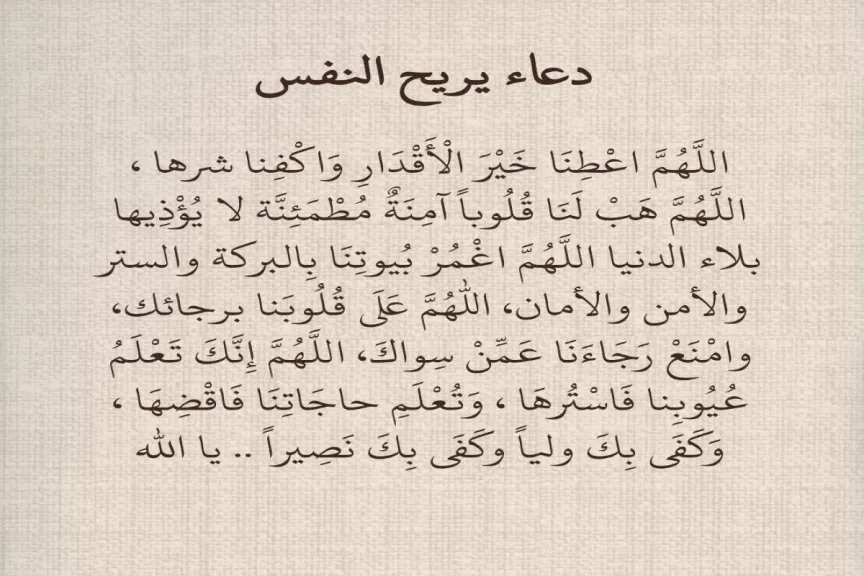 دعاء يريح النفس
اللَّهُمَّ اعْطِنَا خَيْرَ الْأَقْدَارِ وَاكْفِنا شرها ،
اللَّهُمَّ هَبْ لَنَا قُلُوباً آمِنَةٌ مُطْمَئِنَّة لا يُؤْذِيها
بلاء الدنيا اللَّهُمَّ اغْمُرْ بُيوتِنَا بِالبركة والستر
والأمن والأمان، اللهُمَّ عَلَى قُلُوبَنا برجائك،
وامْنَعْ رَجَاءَنَا عَمِّنْ سِواكَ، اللَّهُمَّ إِنَّكَ تَعْلَمُ
عُيُوبِنا فَاسْتُرهَا ، وَتُعْلَمِ حاجَاتِنَا فَاقْضِهَا ،
وَكَفَى بِكَ ولياً وكَفَى بِكَ نَصِيراً .. يا الله